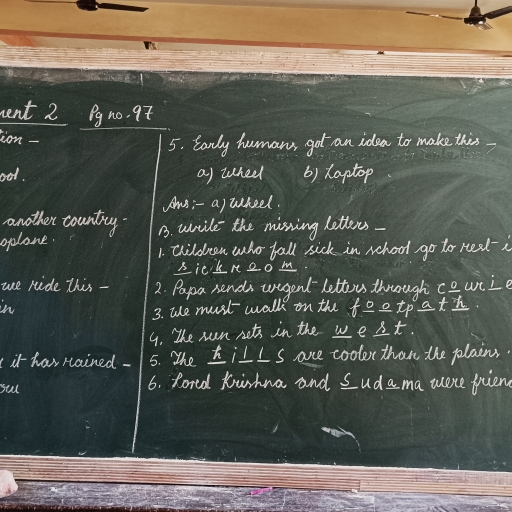 ment 2 Pg no. 97
tion -
ool.
another country -
oplane.
we ride this -
in
it has rained -
ow
5. Early humans got an idea to make this -
a) Wheel b) Laptop
Ans:- a) Wheel.
B. Write the missing letters -
1. Children who fall sick in school go to rest i
sickroom.
2. Papa sends urgent letters through courie
3. We must walk on the footpath.
4. The sun sets in the west.
5. The hills are cooler than the plains.
6. Lord Krishna and Sudama were frien